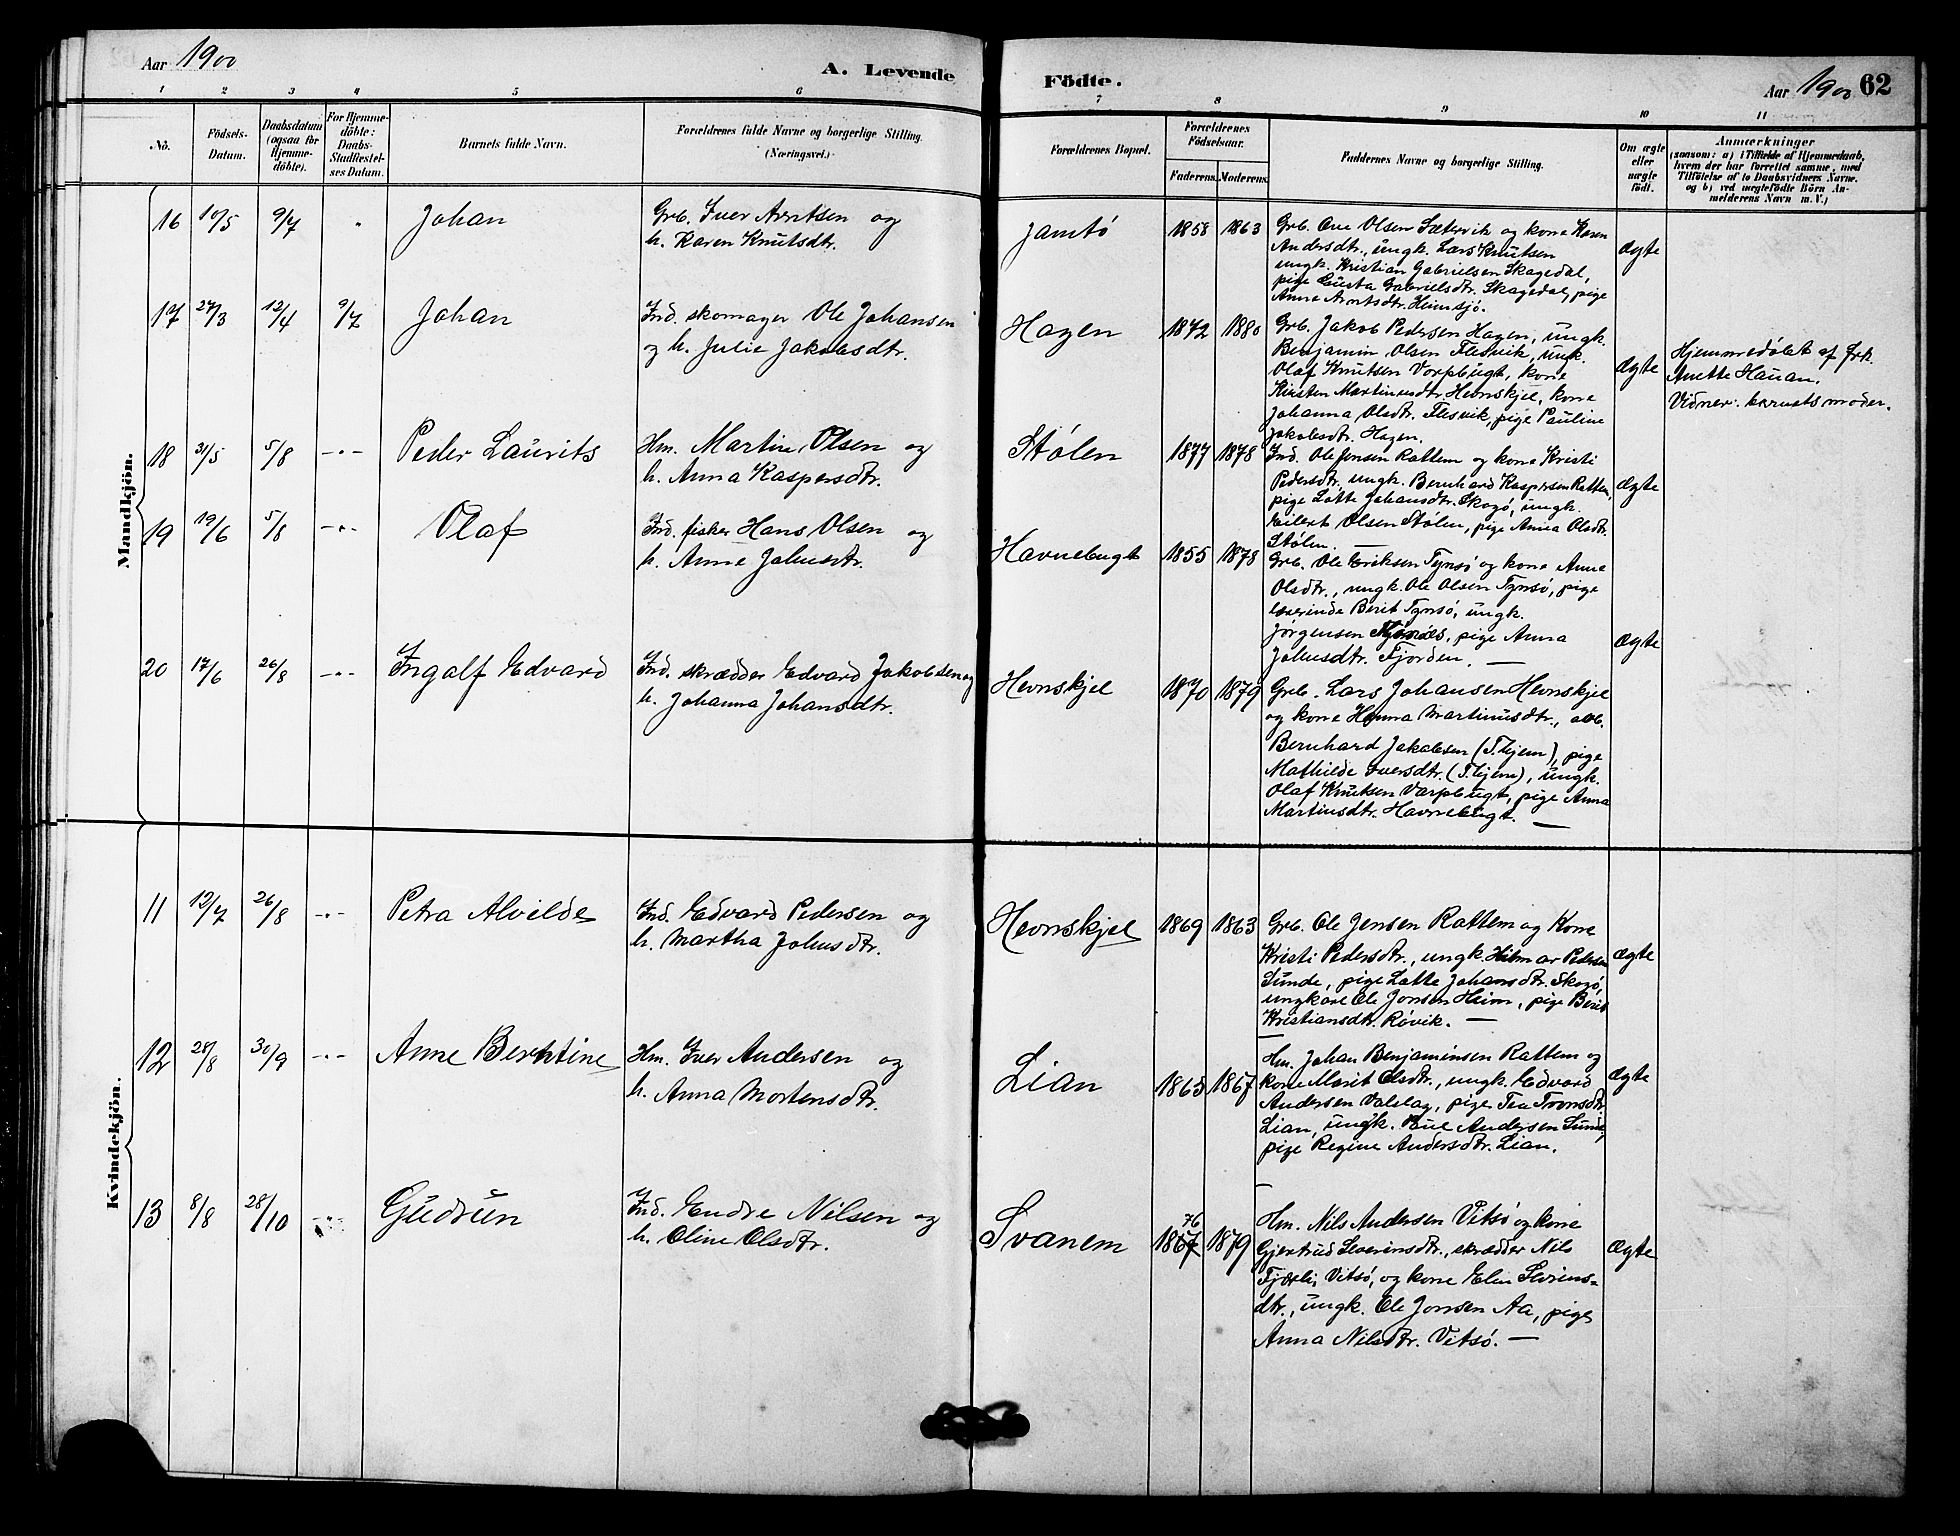 Aar 1900
A. Levende
Födte.
Aar 1900 62
1 2 3 4 5 6 7 8 9 10 11
No.
Födsels-
Datum.
Daabsdatum
(ogsaa for
Hjemme-
döbte).
For Hjemme-
döbte:
Daabs-
Stadfæstel-
ses Datum.
Barnets fulde Navn.
Forældrenes fulde Navne og borgerlige Stilling.
(Næringsvei.)
Forældrenes Bopæl.
Forældrenes
Födselsaar.
Faderens. Moderens.
Faddernes Navne og borgerlige Stilling.
Om ægte
eller
uægte
födt.
Anmærkninger
(saasom: a) i Tilfælde af Hjemmedaab,
hvem der har forrettet samme, med
Tilföielse af to Daabsvidners Navne.
og b) ved uægtefödte Börn An-
melderens Navn m. V.)
Mandkjön.
16 10/5 9/7 " Johan
Grb. Iver Arntsen og
h. Karen Knutsdtr.
Jamtö 1858 1863
Grb. Ove Olsen Sætervik og kone Karen
Andersdtr., ungk. Lars Knutsen
ungk. Kristian Gabrielsen Skagedal,
pige Gusta Gabrielsdtr. Skagedal, pige
Anne Arntsdtr. Heimsjö.
ægte
17 27/3 12/4 9/7 Johan
Ind. skomager Ole Johansen
og h. Julie Jakobsdtr.
Hagen 1872 1880
Grb. Jakob Pedersen Hagen, ungk.
Benjamin Olsen Flesvik, ungk.
Olaf Knutsen Vorpbugt, kone
Kirsten Martinusdtr. Hevnskjel, kone
Johanna Olsdtr. Flesvik, pige Pauline
Jakobsdtr. Hagen.
ægte
Hjemmedöbt af frk.
Anette Hauan.
Vidner: barnets moder.
18 31/5 5/8 -"- Peder Laurits
Hm. Martin Olsen og
h. Anna Kaspersdtr.
Stölen 1877 1878
Ind. Ole Jensen Rattem og kone Kristi
Pedersdtr., ungk. Bernhard Kaspersen Rattem,
pige Lotte Johansdtr. Skogö, ungk.
Eilert Olsen Stölen, pige Anna Olsdtr.
Stölen. —
ægte
19 19/6 5/8 -"- Olaf
Ind. fisker Hans Olsen og
h. Anne Johnsdtr.
Havnebugt 1855 1878
Grb. Ole Eriksen Tynsö og kone Anne
Olsdtr., ungk. Ole Olsen Tynsö, pige
læserinde Berit Tynsö, ungk.
Jörgensen pige Anna
Johnsdtr. Fjorden. —
ægte
20 17/6 26/8 -"- Ingolf Edvard
Ind. skrædder Edvard Jakobsen og
h. Johanna Johansdtr.
Hevnskjel 1870 1879
Grb. Lars Johansen Hevnskjel
og kone Hanna Martinusdtr.,
Bernhard Jakobsen (T.hjem), pige
Mathilde Iversdtr. (T.hjem), ungk.
Olaf Knutsen Værpbugt, pige Anna
Martinsdtr. Havnebugt. —
Kvindekjön.
11 12/7 26/8 -"- Petra Alvilde
Ind. Edvard Pedersen og
h. Martha Johnsdtr.
Hevnskjel 1869 1863
Grb. Ole Jensen Rattem og Kone
Kristi Pedersdtr., ungk. Hilmar Pedersen
Sunde, pige Lotte Johansdtr. Skogö,
ungkare Ole Jonsen Heim, pige Berit
Kristiansdtr. Rövik. —
ægte
12 28/8 30/9 -"- Anne Berntine
Hm. Iver Andersen og
h. Anna Mortensdtr.
Lian 1865 1867
Hm. Johan Benjaminsen Rattem og
kone Marit Olsdtr., ungk. Edvard
Andersen Valslag, pige Tea
Lian, ungk. Andersen Sunde,
pige Regine Andersdtr. Lian.
ægte
13 8/8 28/10 -"- Gudrun
Ind. Endre Nilsen og
h. Oline Olsdtr.
Svanem 1867 76 1879
Hm. Nils Andersen Vitsö og kone
Gjertrud Severinsdtr., skrædder Nils
Fjærli, Vitsö, og kone Elen Sivrins-
dtr., ungk. Ole Jonsen Aa, pige
Anna Nilsdtr. Vitsö. —
ægte